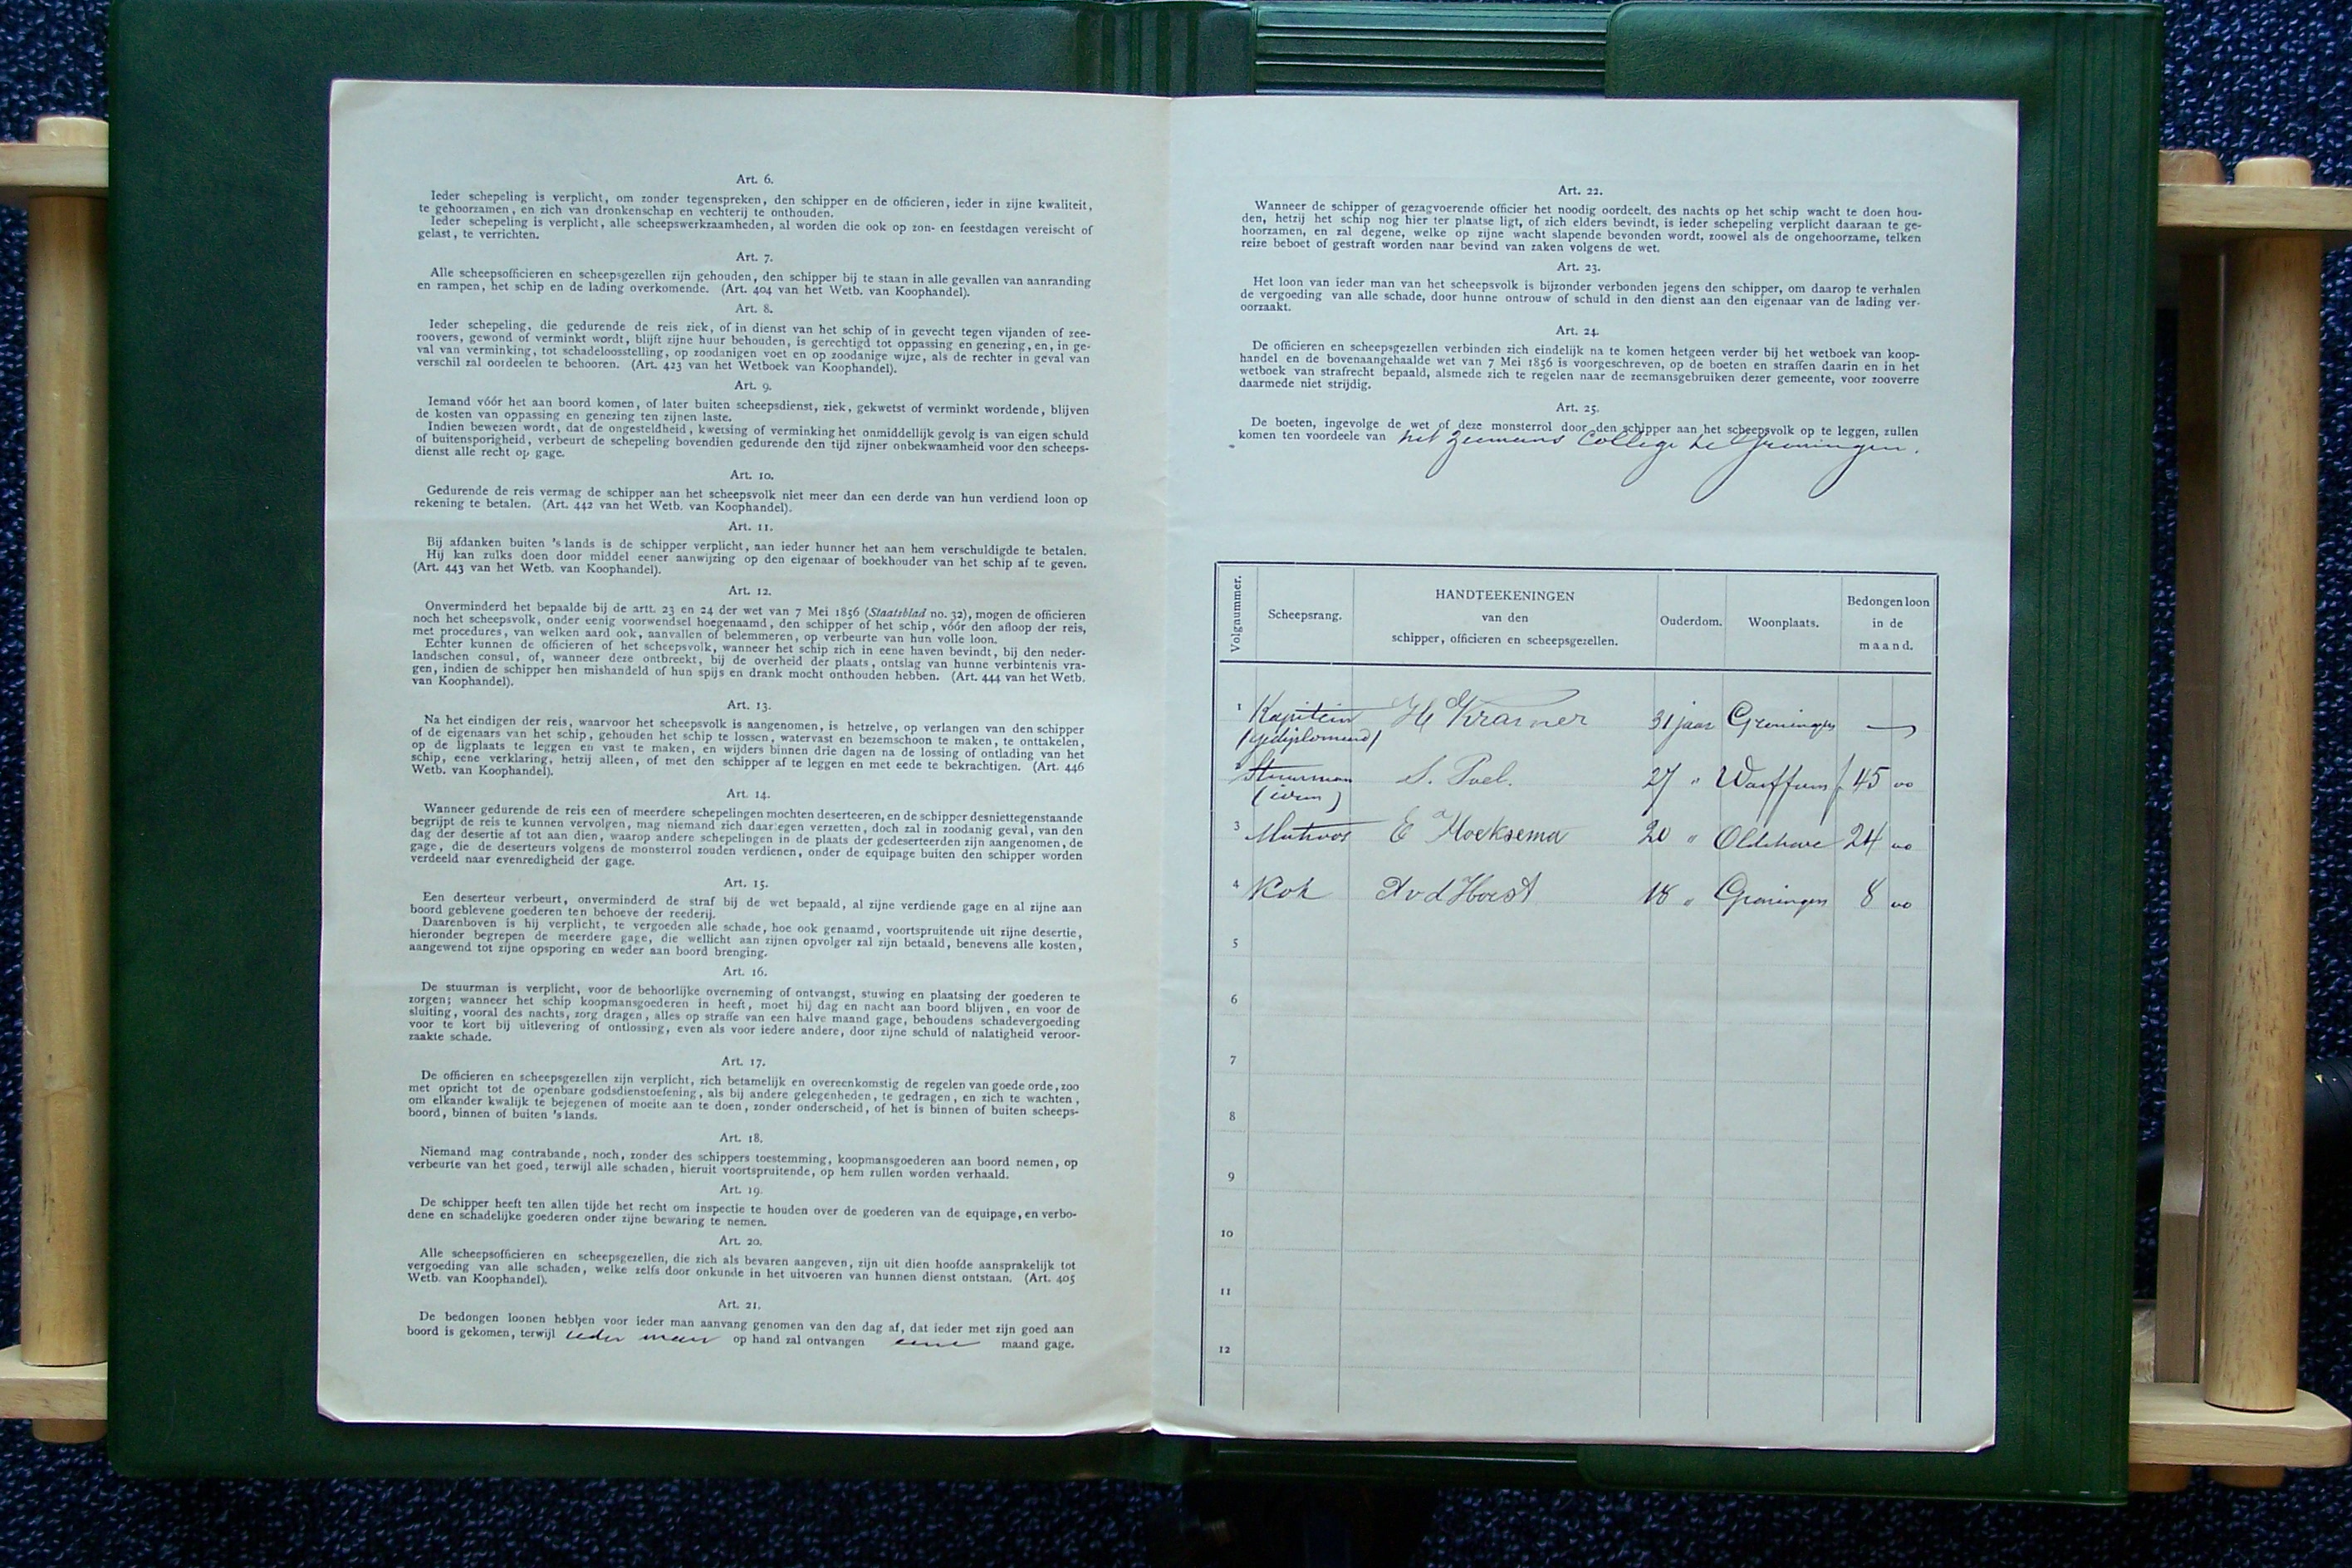 Art. 6.
Ieder schepeling is verplicht, om zonder tegenspreken, den schipper en de officieren, ieder in zijne kwaliteit,
te gehoorzamen, en zich van dronkenschap en vechterij te onthouden.
Ieder schepeling is verplicht, alle scheepswerkzaamheden, al worden die ook op zon- en feestdagen vereischt of
gelast, te verrichten.
Art. 7.
Alle scheepsofficieren en scheepsgezellen zijn gehouden, den schipper bij te staan in alle gevallen van aanranding
en rampen, het schip en de lading overkomende. (Art. 404 van het Wetb. van Koophandel).
Art. 8.
Ieder schepeling, die gedurende de reis ziek, of in dienst van het schip of in gevecht tegen vijanden of zee-
roovers, gewond of verminkt wordt, blijft zijne huur behouden, is gerechtigd tot oppassing en genezing, en, in ge-
val van verminking, tot schadeloosstelling, op zoodanigen voet en op zoodanige wijze, als de rechter in geval van
verschil zal oordeelen te behooren. (Art. 423 van het Wetboek van Koophandel).
Art. 9.
Iemand vóór het aan boord komen, of later buiten scheepsdienst, ziek, gekwetst of verminkt wordende, blijven
de kosten van oppassing en genezing ten zijnen laste.
Indien bewezen wordt, dat de ongesteldheid, kwetsing of verminking het onmiddellijk gevolg is van eigen schuld
of buitensporigheid, verbeurt de schepeling bovendien gedurende den tijd zijner onbekwaamheid voor den scheeps-
dienst alle recht op gage.
Art. 10.
Gedurende de reis vermag de schipper aan het scheepsvolk niet meer dan een derde van hun verdiend loon op
rekening te betalen. (Art. 442 van het Wetb. van Koophandel).
Art. 11.
Bij afdanken buiten 's lands is de schipper verplicht, aan ieder hunner het aan hem verschuldigde te betalen.
Hij kan zulks doen door middel eener aanwijzing op den eigenaar of boekhouder van het schip af te geven.
(Art. 443 van het Wetb. van Koophandel).
Art. 12.
Onverminderd het bepaalde bij de artt. 23 en 24 der wet van 7 Mei 1856 (Staatsblad no. 32), mogen de officieren
noch het scheepsvolk, onder eenig voorwendsel hoegenaamd, den schipper of het schip, vóór den afloop der reis,
met procedures, van welken aard ook, aanvallen of belemmeren, op verbeurte van hun volle loon.
Echter kunnen de officieren of het scheepsvolk, wanneer het schip zich in eene haven bevindt, bij den neder-
landschen consul, of, wanneer deze ontbreekt, bij de overheid der plaats, ontslag van hunne verbintenis vra-
gen, indien de schipper hen mishandeld of hun spijs en drank mocht onthouden hebben. (Art. 444 van het Wetb.
van Koophandel).
Art. 13.
Na het eindigen der reis, waarvoor het scheepsvolk is aangenomen, is hetzelve, op verlangen van den schipper
of de eigenaars van het schip, gehouden het schip te lossen, watervast en bezemschoon te maken, te onttakelen,
op de ligplaats te leggen en vast te maken, en wijders binnen drie dagen na de lossing of ontlading van het
schip, eene verklaring, hetzij alleen, of met den schipper af te leggen en met eede te bekrachtigen. (Art. 446
Wetb. van Koophandel).
Art. 14.
Wanneer gedurende de reis een of meerdere schepelingen mochten deserteeren, en de schipper desniettegenstaande
begrijpt de reis te kunnen vervolgen, mag niemand zich daartegen verzetten, doch zal in zoodanig geval, van den
dag der desertie af tot aan dien, waarop andere schepelingen in de plaats der gedeserteerden zijn aangenomen, de
gage, die de deserteurs volgens de monsterrol zouden verdienen, onder de equipage buiten den schipper worden
verdeeld naar evenredigheid der gage.
Art. 15.
Een deserteur verbeurt, onverminderd de straf bij de wet bepaald, al zijne verdiende gage en al zijne aan
boord geblevene goederen ten behoeve der reederij.
Daarenboven is hij verplicht, te vergoeden alle schade, hoe ook genaamd, voortspruitende uit zijne desertie,
hieronder begrepen de meerdere gage, die wellicht aan zijnen opvolger zal zijn betaald, benevens alle kosten,
aangewend tot zijne opsporing en weder aan boord brenging.
Art. 16.
De stuurman is verplicht, voor de behoorlijke overneming of ontvangst, stuwing en plaatsing der goederen te
zorgen; wanneer het schip koopmansgoederen in heeft, moet hij dag en nacht aan boord blijven, en voor de
sluiting, vooral des nachts, zorg dragen, alles op straffe van een halve maand gage, behoudens schadevergoeding
voor te kort bij uitlevering of ontlossing, even als voor iedere andere, door zijne schuld of nalatigheid veroor-
zaakte schade.
Art. 17.
De officieren en scheepsgezellen zijn verplicht, zich betamelijk en overeenkomstig de regelen van goede orde, zoo
met opzicht tot de openbare godsdienstoefening, als bij andere gelegenheden, te gedragen, en zich te wachten,
om elkander kwalijk te bejegenen of moeite aan te doen, zonder onderscheid, of het is binnen of buiten scheeps-
boord, binnen of buiten 's lands.
Art. 18.
Niemand mag contrabande, noch, zonder des schippers toestemming, koopmansgoederen aan boord nemen, op
verbeurte van het goed, terwijl alle schaden, hieruit voortspruitende, op hem zullen worden verhaald.
Art. 19.
De schipper heeft ten allen tijde het recht om inspectie te houden over de goederen van de equipage, en verbo-
dene en schadelijke goederen onder zijne bewaring te nemen.
Art. 20.
Alle scheepsofficieren en scheepsgezellen, die zich als bevaren aangeven, zijn uit dien hoofde aansprakelijk tot
vergoeding van alle schaden, welke zelfs door onkunde in het uitvoeren van hunnen dienst ontstaan. (Art. 405
Wetb. van Koophandel).
Art. 21.
De bedongen loonen hebben voor ieder man aanvang genomen van den dag af, dat ieder met zijn goed aan
boord is gekomen, terwijl ieder man op hand zal ontvangen eene maand gage.
Art. 22.
Wanneer de schipper of gezagvoerende officier het noodig oordeelt, des nachts op het schip wacht te doen hou-
den, hetzij het schip nog hier ter plaatse ligt, of zich elders bevindt, is ieder schepeling verplicht daaraan te ge-
hoorzamen, en zal degene, welke op zijne wacht slapende bevonden wordt, zoowel als de ongehoorzame, telken
reize beboet of gestraft worden naar bevind van zaken volgens de wet.
Art. 23.
Het loon van ieder man van het scheepsvolk is bijzonder verbonden jegens den schipper, om daarop te verhalen
de vergoeding van alle schade, door hunne ontrouw of schuld in den dienst aan den eigenaar van de lading ver-
oorzaakt.
Art. 24.
De officieren en scheepsgezellen verbinden zich eindelijk na te komen hetgeen verder bij het wetboek van koop-
handel en de bovenaangehaalde wet van 7 Mei 1856 is voorgeschreven, op de boeten en straffen daarin en in het
wetboek van strafrecht bepaald, alsmede zich te regelen naar de zeemansgebruiken dezer gemeente, voor zooverre
daarmede niet strijdig.
Art. 25.
De boeten, ingevolge de wet of deze monsterrol door den schipper aan het scheepsvolk op te leggen, zullen
komen ten voordeele van het Zeemans College te Groningen.
Volgnummer. Scheepsrang. HANDTEEKENINGEN van den schipper, officieren en scheepsgezellen. Ouderdom. Woonplaats. Bedongen loon in de maand.
1 Kapitein H Kramer 31 jaar Groningen —
(gediplomeerd)
2 Stuurman S. Poel. 27 " Warffum f 45 00
(idem)
3 Matroos E Hoeksema 20 " Oldehove 24 00
4 Kok A v d Horst 18 " Groningen 8 00
5
6
7
8
9
10
11
12